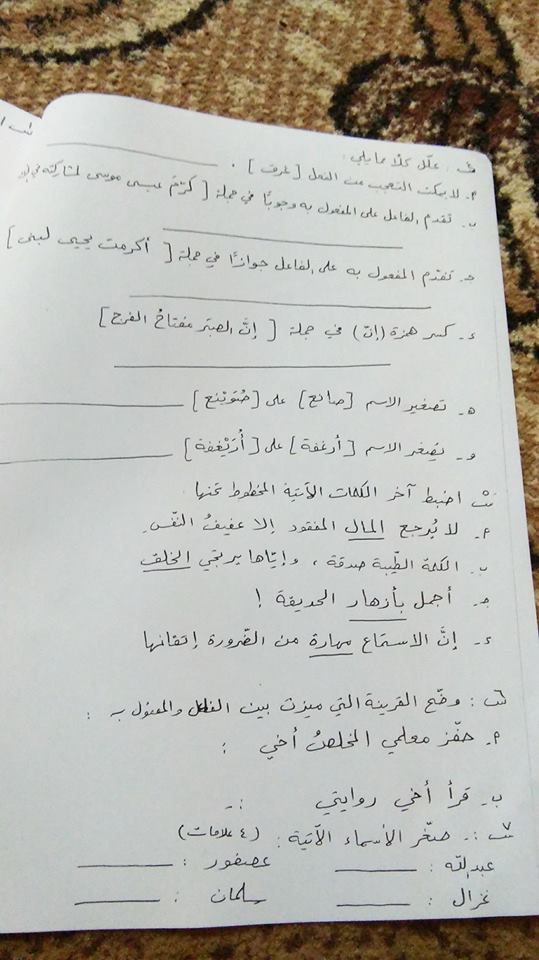 علّل كلًّا مما يلي :
م. لا يمكن التعجب من الفعل [غرق] .
ب. تقدم الفاعل على المفعول به وجوبًا في جملة [ كرّم عيسى موسى لمشاركته في
جـ. تقدّم المفعول به على الفاعل جوازًا في جملة [ أكرمت يحيى لبنى ]
د. كسر همزة (إنّ) في جملة [ إنَّ الصبرَ مفتاحُ الفرج ]
هـ. تصغير الاسم [صانع] على [صُوَيْنع]
و. تصغير الاسم [أرغفة] على [أُرَيْغفة]
س٥ اضبط آخر الكلمات الآتية المخطوط تحتها
م. لا يُرجع المال المفقود إلا عفيفُ النّفسِ
ب. الكلمة الطّيبة صدقة ، وإيّاها يرتجي الخلق
جـ. أجمل بأزهار الحديقة !
د. إنَّ الاستماع مهارة من الضّرورة إتقانها
س٦ : وضّح القرينة التي ميزت بين الفاعل والمفعول به :
م. حفّز معلمي المخلصُ أخي :
ب. قرأ أخي روايتي :-
س٧ :- صغّر الأسماء الآتية : (٤ علامات)
عبدالله : عصفور :
غزال : سلمان :